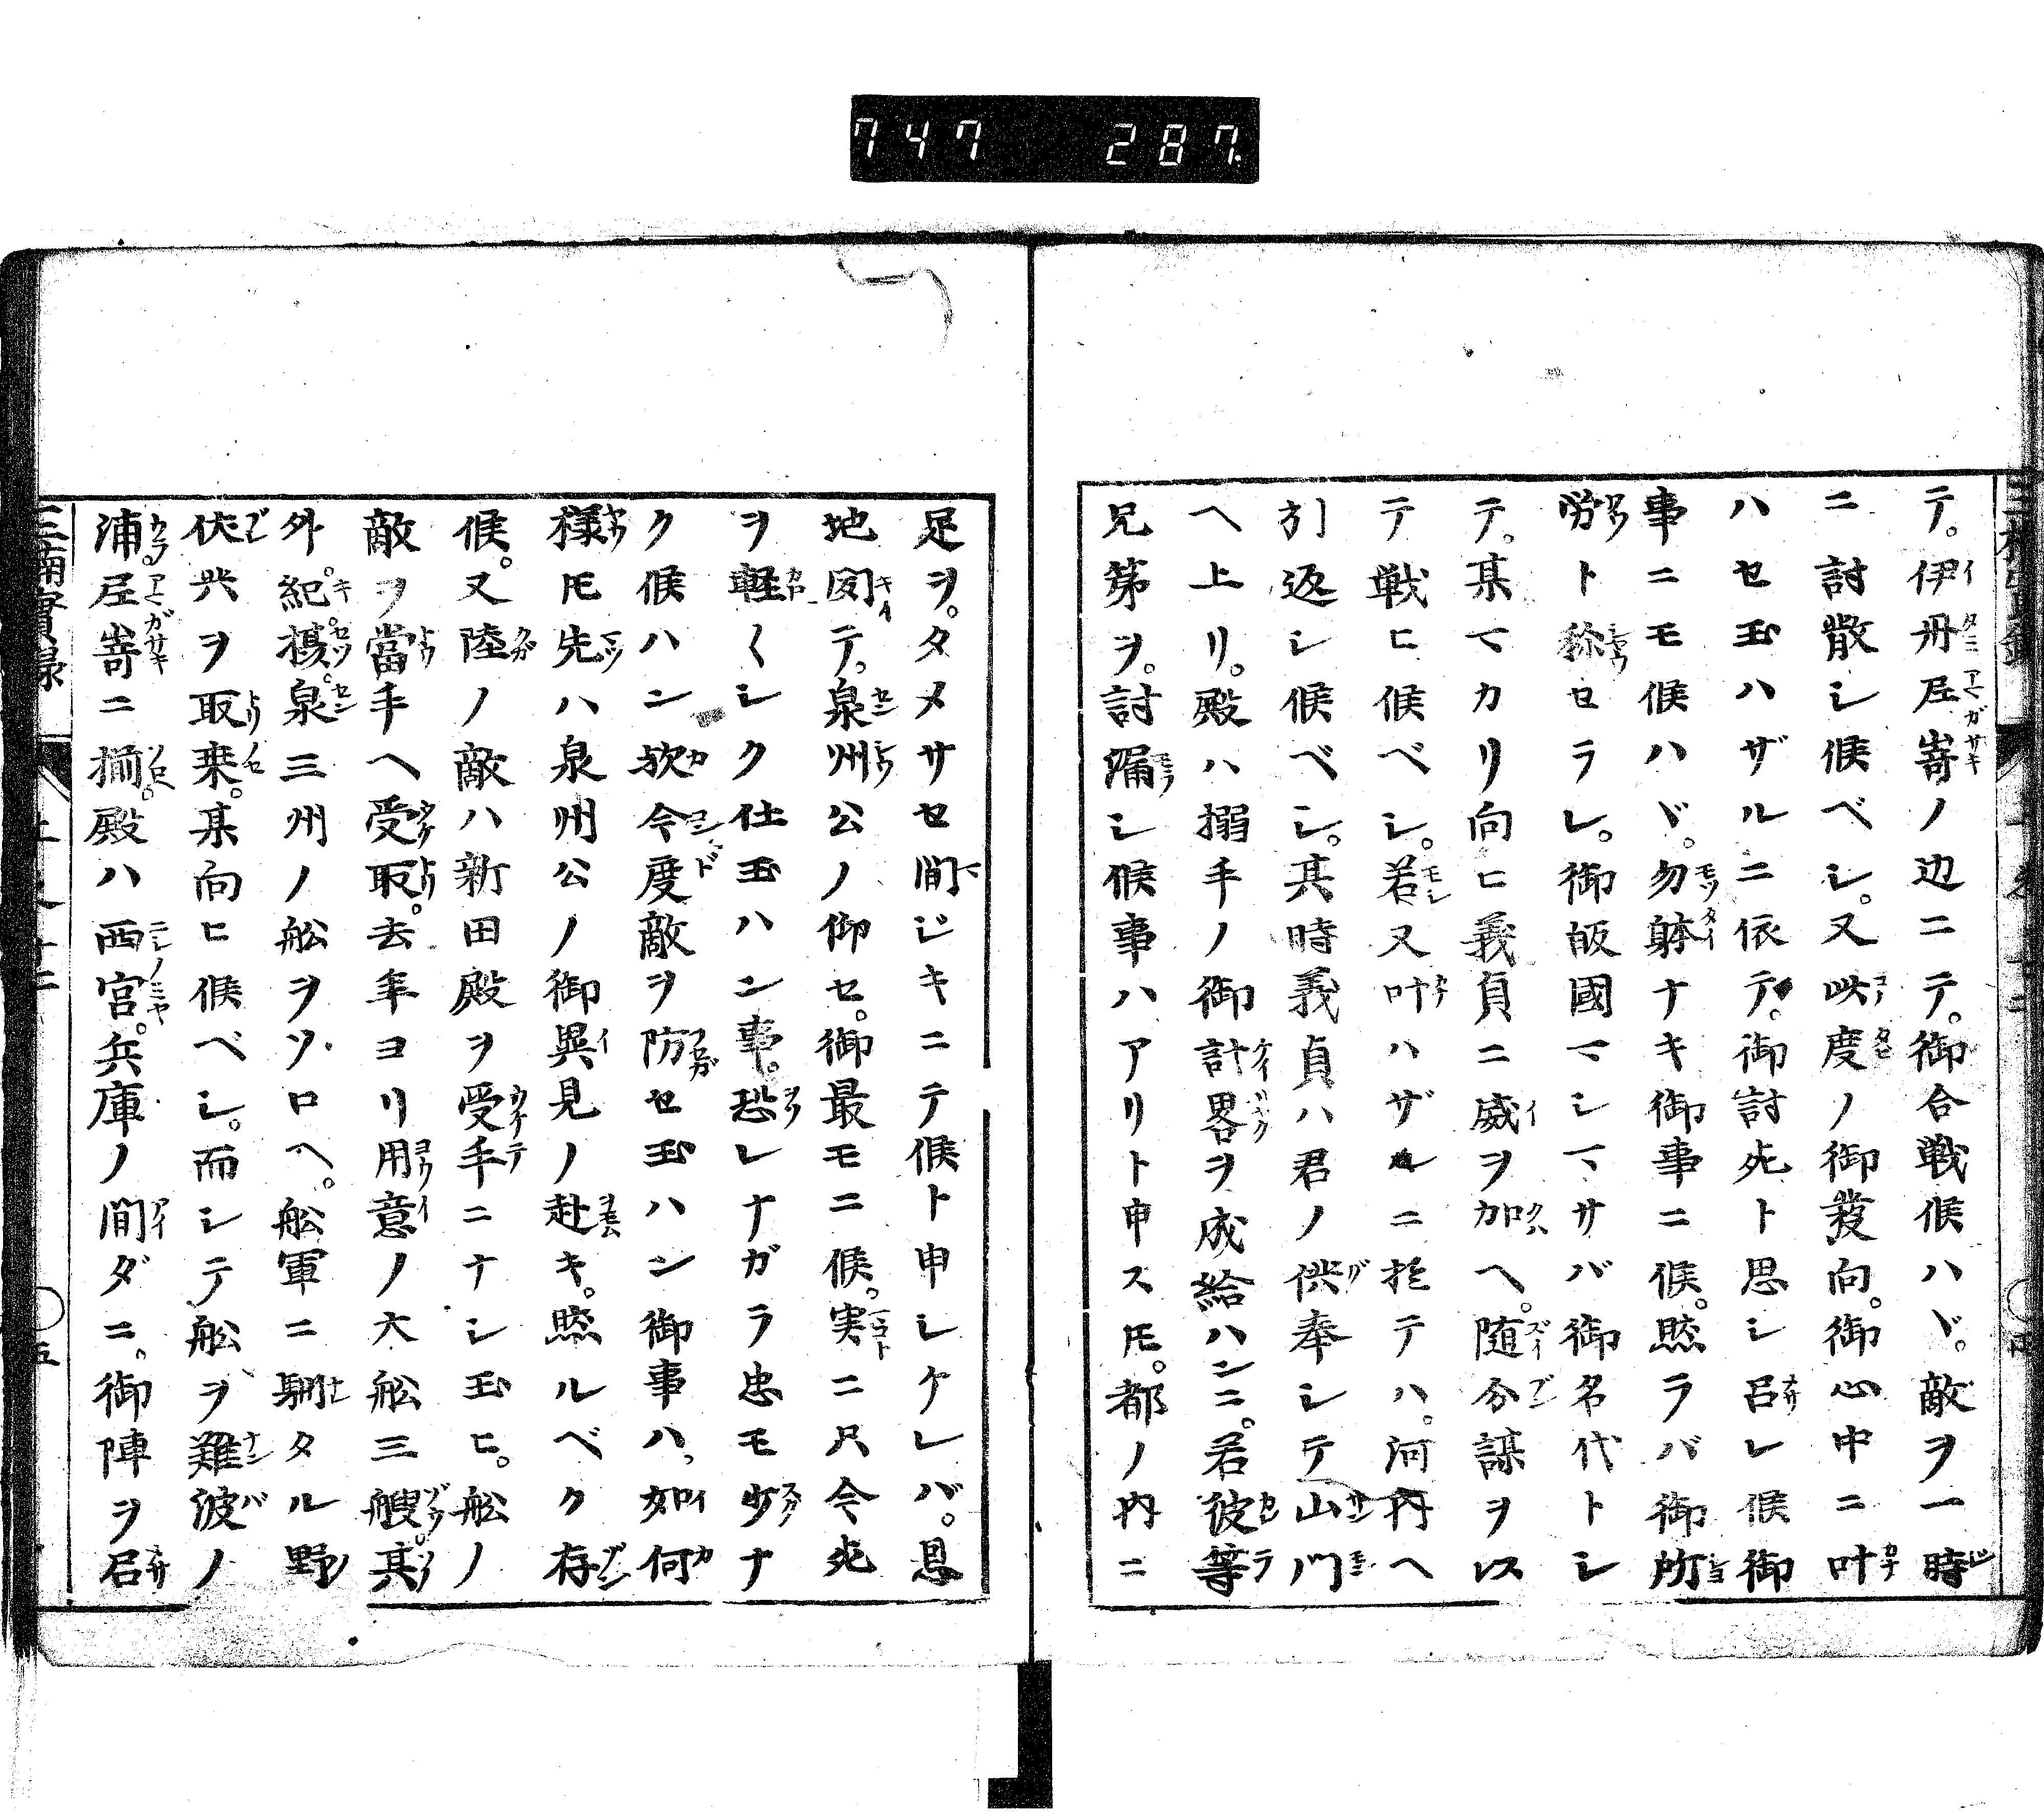 747 287
テ。伊丹尼嵜ノ辺ニテ。御合戦候ハヾ。敵ヲ一時
ニ討散シ候ベシ。又此度ノ御發向。御心中ニ叶
ハセ玉ハザルニ依テ。御討死ト思シ召レ候御
事ニモ候ハヾ。勿躰ナキ御事ニ候。然ラバ御所
労ト称セラレ。御皈國マシマサバ御名代トシ
テ。某マカリ向ヒ義貞ニ威ヲ加ヘ。随分謀ヲ以
テ戦ヒ候ベシ。若又叶ハザルニ於テハ。河内ヘ
引返シ候ベシ。其時義貞ハ君ノ供奉シテ山門
ヘ上リ。殿ハ搦手ノ御計畧ヲ成給ハンニ。若彼等
兄第ヲ。討漏シ候事ハアリト申ス𪜈。都ノ内ニ
足ヲ。タメサセ間ジキニテ候ト申シケレバ。恩
地聞テ。泉州公ノ仰セ。御最モニ候。実ニ只今死
ヲ軽〱シク仕玉ハン事。恐レナガラ忠モ少ナ
ク候ハン欤今度敵ヲ防セ玉ハン御事ハ、如何
様𪜈先ハ泉州公ノ御異見ノ赴キ。然ルベク存
候。又陸ノ敵ハ新田殿ヲ受手ニナシ玉ヒ。舩ノ
敵ヲ當手ヘ受取。去年ヨリ用意ノ大舩三艘。其
外紀。摂。泉三州ノ舩ヲソロヘ。舩軍ニ馴タル野
伏共ヲ取乗。某向ヒ候ベシ。而シテ舩ヲ難波ノ
浦。尼嵜ニ揃。殿ハ西宮。兵庫ノ間ダニ。御陣ヲ召